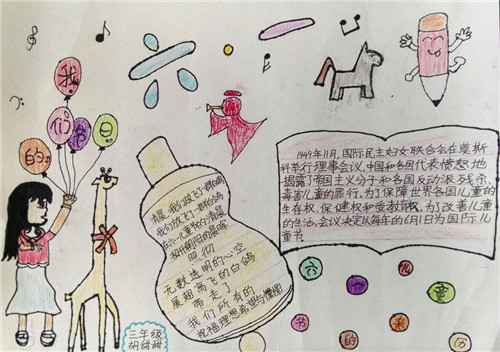 六·一
我
们
的
节
日
1949年11月,国际民主妇女联合会在莫斯
科举行理事会议,中国和各国代表愤怒地
揭露了帝国主义分子和各国反动派残杀、
毒害儿童的罪行。为了保障世界各国儿童的
生存权、保健权和受教育权,为了改善儿童
的生活,会议决定以每年的6月1日为国际儿
童节。
我们放飞了一群白鸽
在六一儿童节的清晨
照彻
无数透明的心空
展翅高飞的白鸽
带走了
我们所有的
祝福理想希望与憧憬
六一儿童
节的来
三年级
胡甜甜